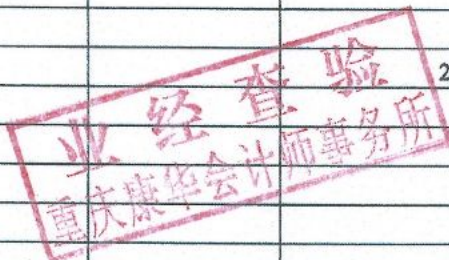 业经查验
重庆康华会计师事务所
2